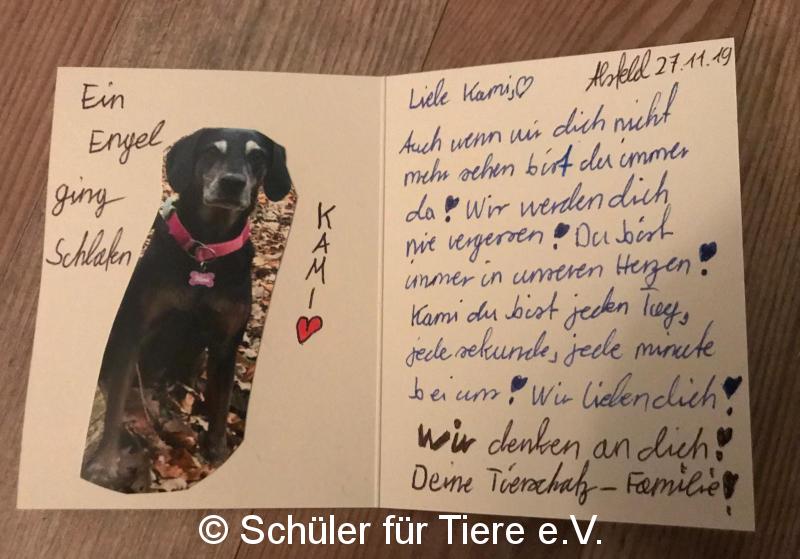 Ein
Engel
ging
Schlafen
KAMI
Alsfeld 27.11.19
Liebe Kami,
Auch wenn wir dich nicht
mehr sehen bist du immer
da! Wir werden dich
nie vergessen! Du bist
immer in unseren Herzen!
Kami du bist jeden Tag,
jede sekunde, jede minute
bei uns! Wir lieben dich!
Wir denken an dich!
Deine Tierschatz-Familie!
© Schüler für Tiere e.V.